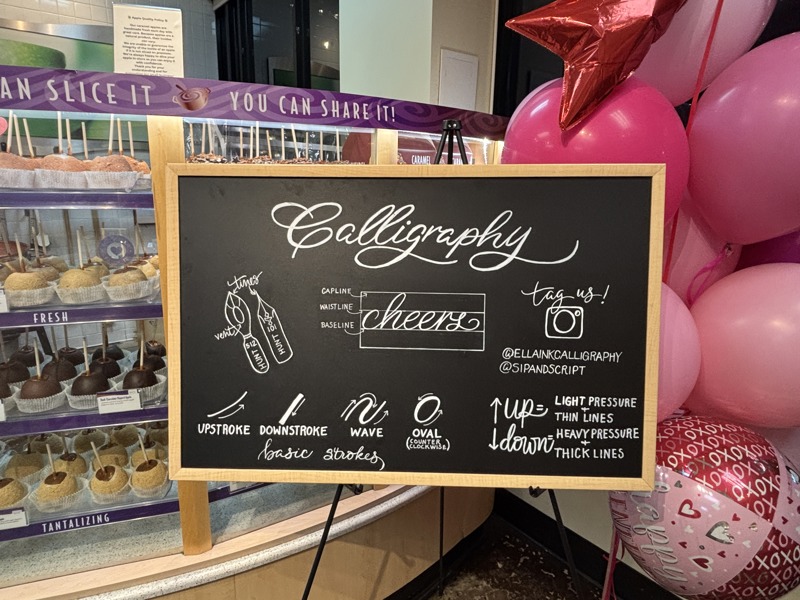 Apple Quality Policy
AN SLICE IT YOU CAN SHARE IT!
CARAMEL
Calligraphy
tines
vent
HUNT 512
HUNT 101
CAPLINE
WAISTLINE
BASELINE
cheers
tag us!
@ELLAINKCALLIGRAPHY
@SIPANDSCRIPT
UPSTROKE
DOWNSTROKE
WAVE
OVAL
(COUNTER
CLOCKWISE)
basic strokes
↑up= LIGHT PRESSURE
+
THIN LINES
↓down= HEAVY PRESSURE
+
THICK LINES
FRESH
TANTALIZING
XOXO